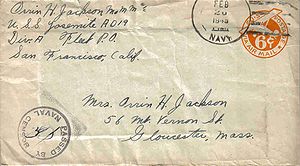 Orrin H. Jackson MoMM 1/c
U.S.S. Yosemite AD19
Div. A Fleet P.O.
San Francisco, Calif.
FEB
1945
NAVY
6¢
AIR MAIL
Mrs. Orrin H Jackson
56 Mt. Vernon St.
Gloucester, Mass.
PASSED BY
NAVAL CENSOR